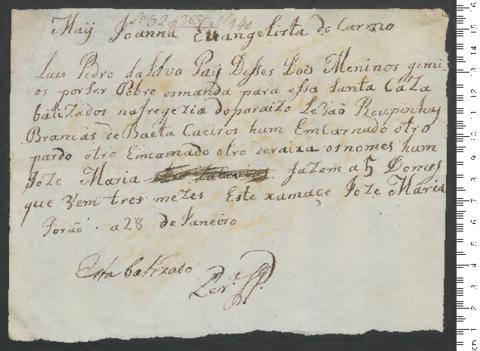 Maÿ Joanna Evangelista do Carmo
Luis Pedro da Silva Paÿ Desses Dois Meninos gemi
os por ser Pobre os manda para essa Santa Caza
batizados na fregezia do paraizo Levão Roupinhas
Brancas de Baeta Caeiros hum Emcarnado otro
pardo otro Emcarnado otro seraixa os nomes hum
Joze Maria fazem a 5 Domes
que vem tres mezes Este xamace Joze Maria
forão a 28 de Janeiro
Esta batizado